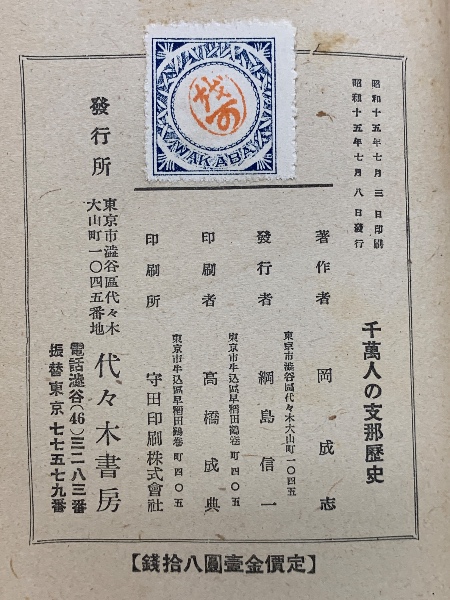 昭和十五年七月三日印刷
昭和十五年七月八日發行
千萬人の支那歷史
著作者 岡成志
東京市澁谷區代々木大山町一〇四五
發行者 綱島信一
東京市牛込區早稻田鶴卷町四〇五
印刷者 髙橋成典
東京市牛込區早稻田鶴卷町四〇五
印刷所 守田印刷株式會社
發行所
東京市澁谷區代々木
大山町一〇四五番地
代々木書房
電話澁谷(46)三二八三番
振替東京七七五七九番
WAKABAY
【定價金壹圓八拾錢】